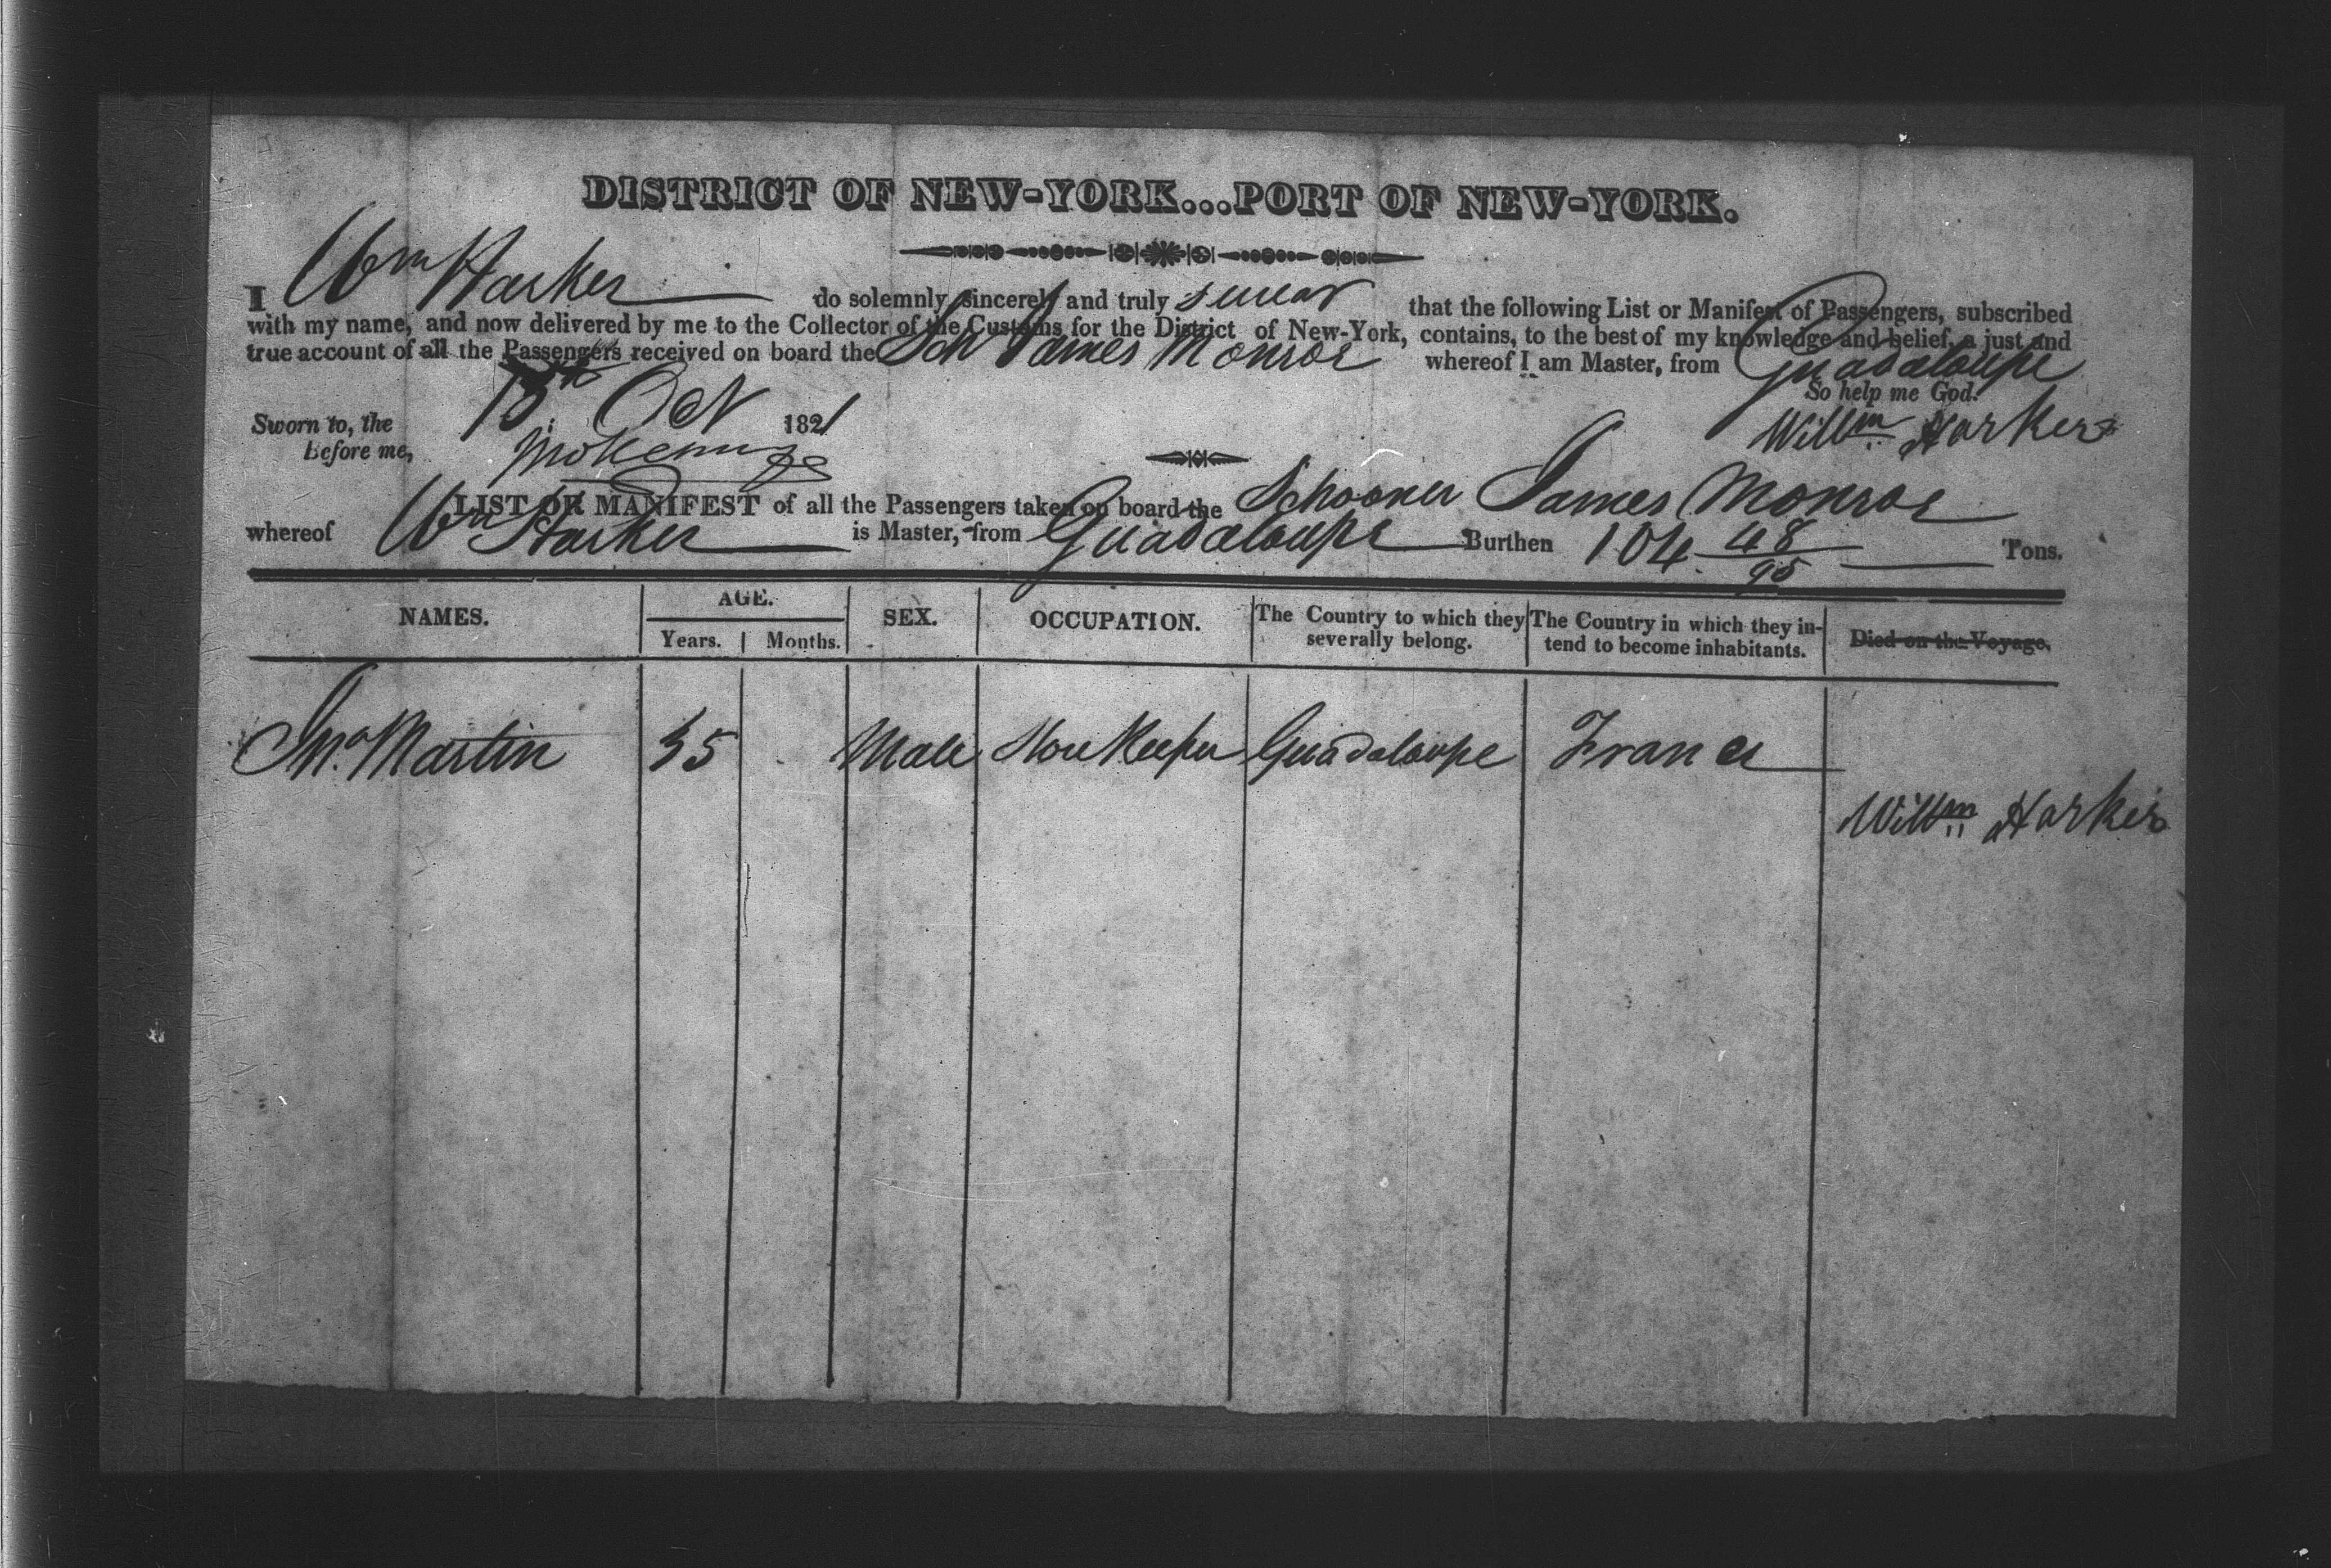 DISTRICT OF NEW-YORK...PORT OF NEW-YORK.
I Wm Harker do solemnly, sincerely and truly swear that the following List or Manifest of Passengers, subscribed
with my name, and now delivered by me to the Collector of the Customs for the District of New-York, contains, to the best of my knowledge and belief, a just and
true account of all the Passengers received on board the Schr James Monroe whereof I am Master, from Guadaloupe
So help me God.
Sworn to, the 13th Oct 1821 Willm Harker
Before me,
LIST OR MANIFEST of all the Passengers taken on board the Schooner James Monroe
whereof Wm Harker is Master, from Guadaloupe Burthen 104 48/95 Tons.
NAMES. AGE. SEX. OCCUPATION. The Country to which they severally belong. The Country in which they intend to become inhabitants. Died on the Voyage.
Years. Months.
Jno. Martin 35 Male Store Keeper Guadaloupe France
Willm Harker